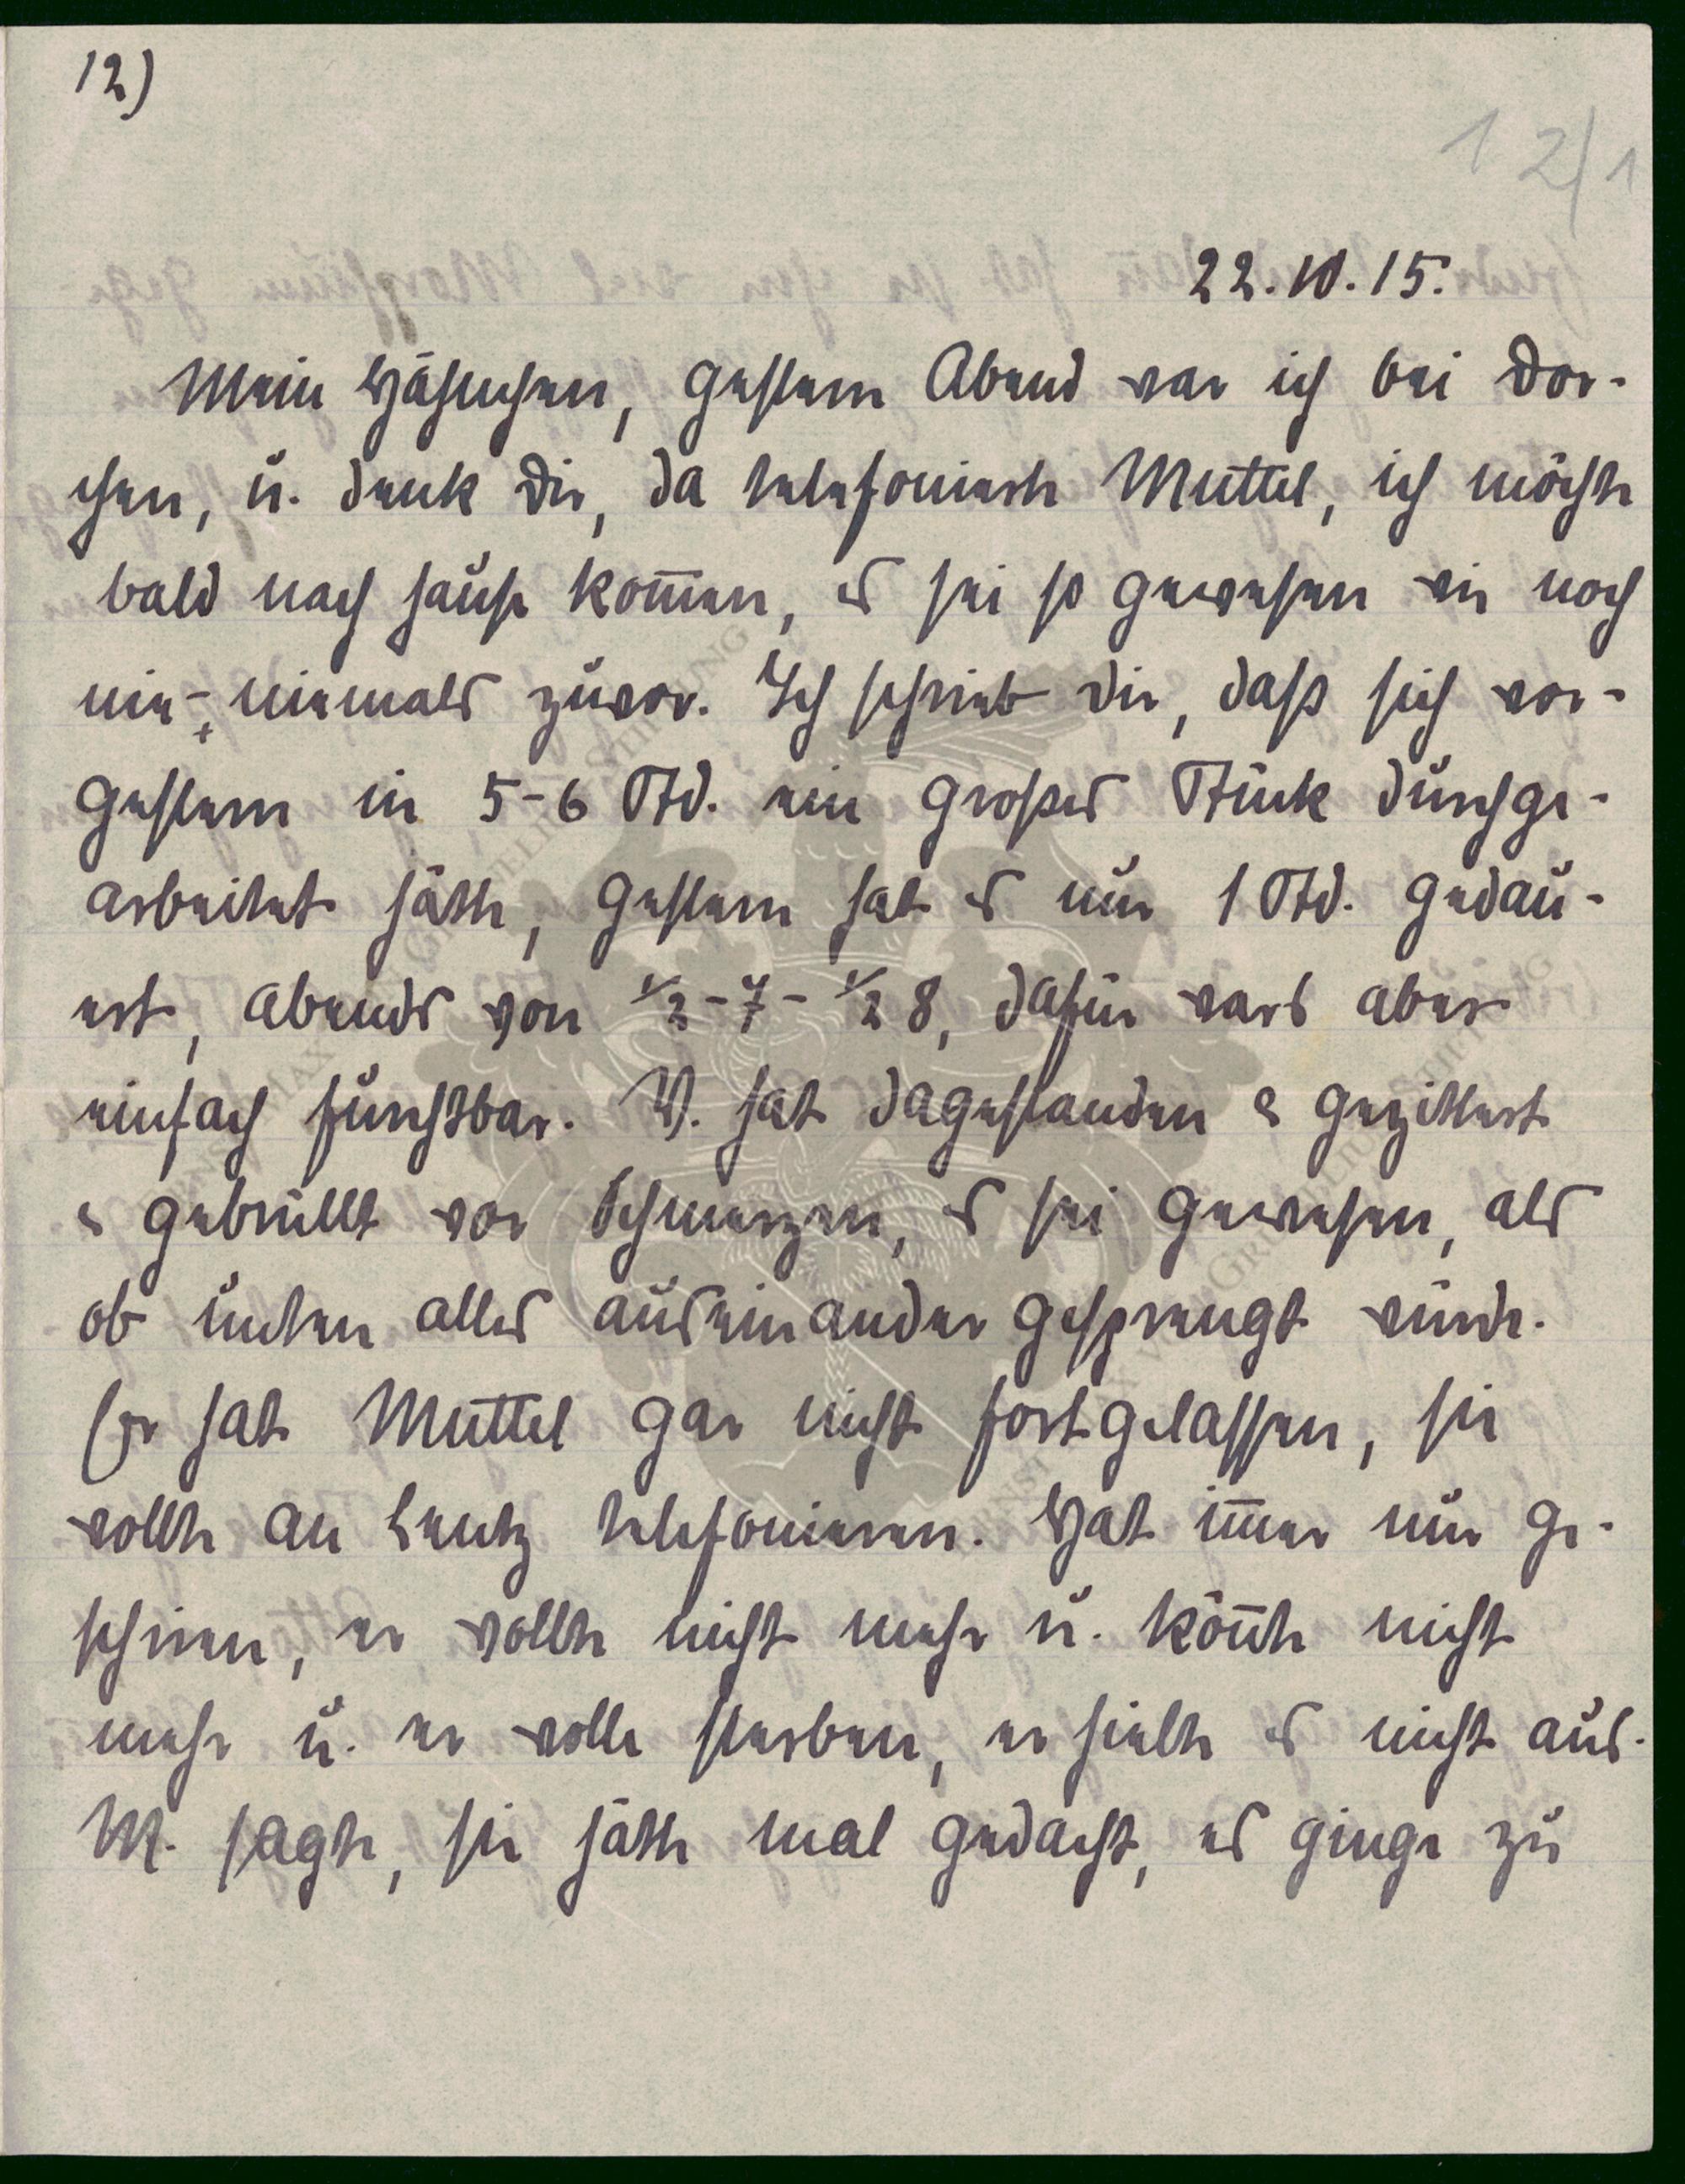 12)
12/1
22.10.15.
Mein Häschen, gestern Abend war ich bei Dor-
chen, u. denk Dir, da telefonierte Muttel, ich möchte
bald nach hause kommen, es sei so gewesen wie noch
nie-, niemals zuvor. Ich schrieb Dir, dass sich vor-
gestern in 5-6 Std. ein grosses Stück durchge-
arbeitet hätte, gestern hat es nur 1 Std. gedau-
ert, abends von 1/2-7-1/2 8, dafür wars aber
einfach furchtbar. V. hat dagestanden & gezittert
& gebrüllt vor Schmerzen, es sei gewesen, als
ob unten alles auseinander gesprengt würde.
Er hat Muttel gar nicht fortgelassen, sie
wollte an Lentz telefonieren. Hat immer nur ge-
schrieen, er wollte nicht mehr u. könnte nicht
mehr u. er wolle sterben, er hielte es nicht aus.
M. sagte, sie hätte mal gedacht, es ginge zu